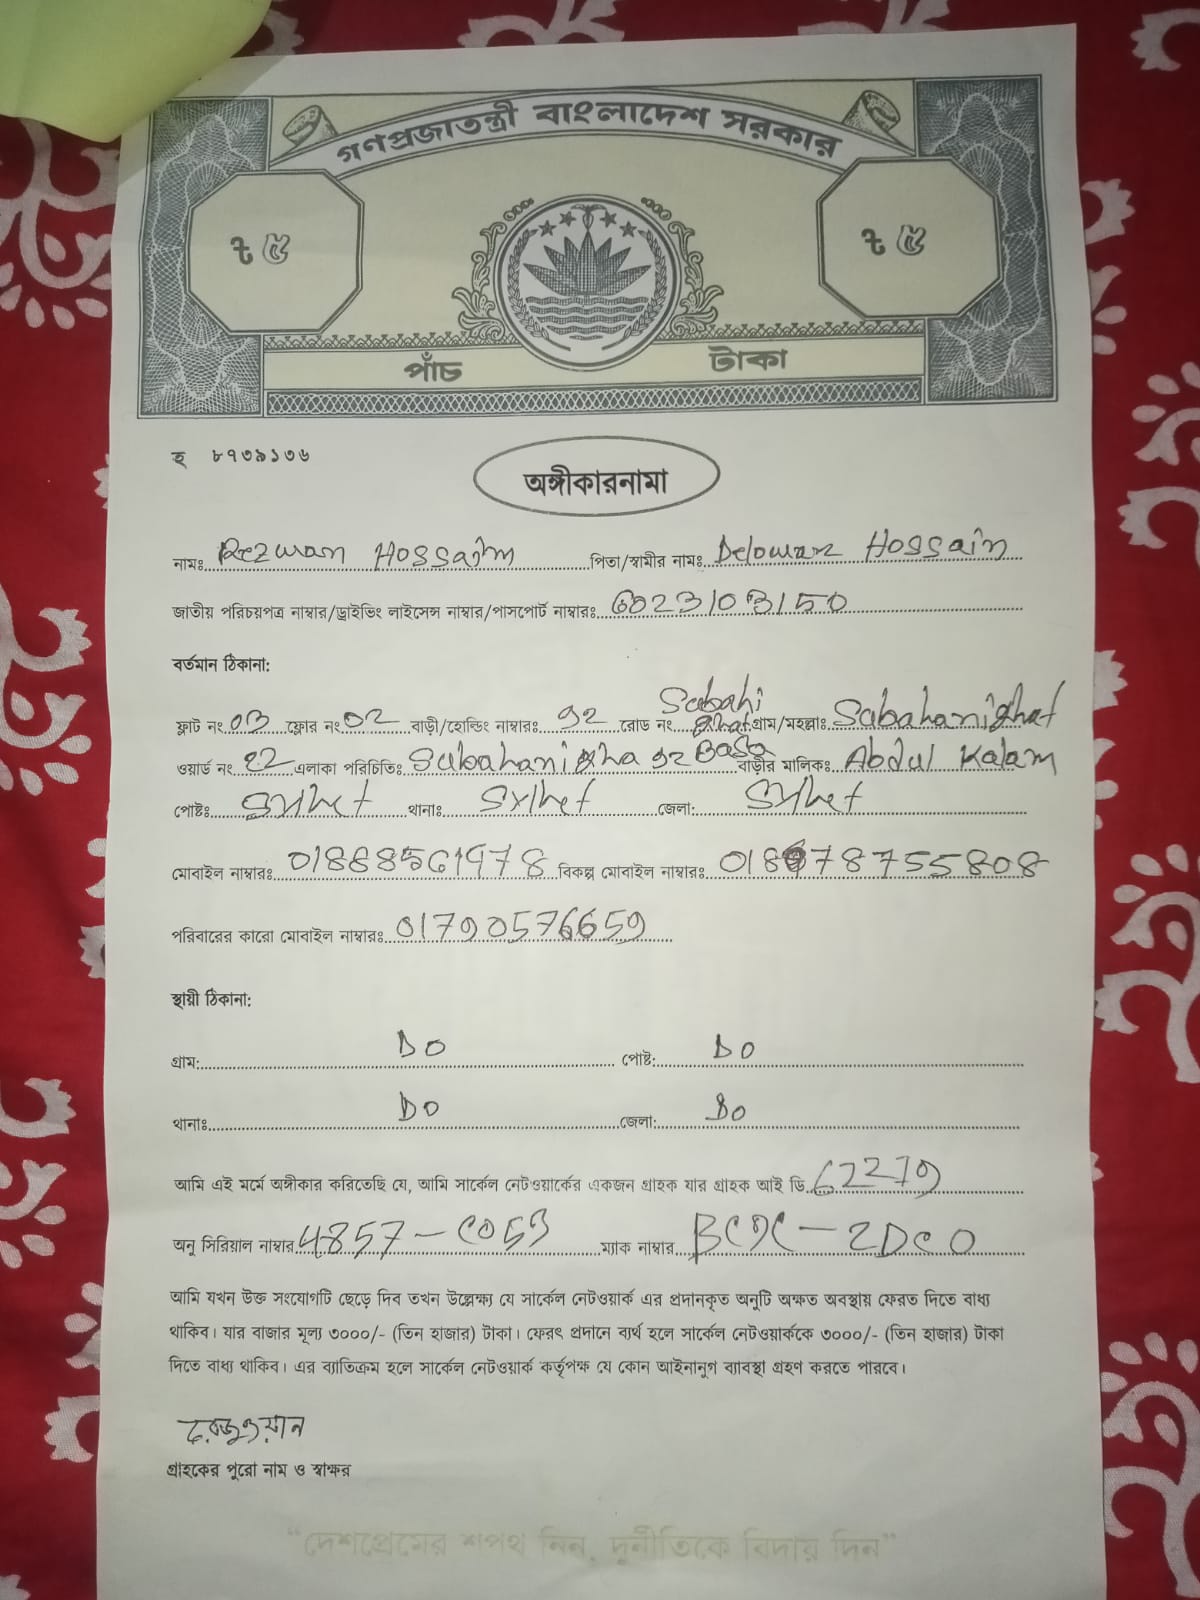 গণপ্রজাতন্ত্রী বাংলাদেশ সরকার
৳ ৫ ৳ ৫
পাঁচ টাকা
হ ৮৭৩৯১৩৬
অঙ্গীকারনামা
নামঃ Rezwan Hossain পিতা/স্বামীর নামঃ Delowar Hossain
জাতীয় পরিচয়পত্র নাম্বার/ড্রাইভিং লাইসেন্স নাম্বার/পাসপোর্ট নাম্বারঃ 6023103150
বর্তমান ঠিকানা:
ফ্লাট নং 03 ফ্লোর নং 02 বাড়ী/হোল্ডিং নাম্বারঃ 92 রোড নং Sabahi ghat গ্রাম/মহল্লাঃ Sabahanighat
ওয়ার্ড নং 22 এলাকা পরিচিতিঃ Sabahanigha 92 Basa বাড়ীর মালিকঃ Abdul Kalam
পোষ্টঃ Sylhet থানাঃ Sylhet জেলা: Sylhet
মোবাইল নাম্বারঃ 01888561978 বিকল্প মোবাইল নাম্বারঃ
পরিবারের কারো মোবাইল নাম্বারঃ 01790576659
স্থায়ী ঠিকানা:
গ্রাম: DO পোষ্ট: DO
থানাঃ DO জেলা: DO
আমি এই মর্মে অঙ্গীকার করিতেছি যে, আমি সার্কেল নেটওয়ার্কের একজন গ্রাহক যার গ্রাহক আই ডি 62279
অনু সিরিয়াল নাম্বার 4857-C053 ম্যাক নাম্বার
আমি যখন উক্ত সংযোগটি ছেড়ে দিব তখন উল্লেক্ষ্য যে সার্কেল নেটওয়ার্ক এর প্রদানকৃত অনুটি অক্ষত অবস্থায় ফেরত দিতে বাধ্য
থাকিব। যার বাজার মূল্য ৩০০০/- (তিন হাজার) টাকা। ফেরৎ প্রদানে ব্যর্থ হলে সার্কেল নেটওয়ার্ককে ৩০০০/- (তিন হাজার) টাকা
দিতে বাধ্য থাকিব। এর ব্যাতিক্রম হলে সার্কেল নেটওয়ার্ক কর্তৃপক্ষ যে কোন আইনানুগ ব্যাবস্থা গ্রহণ করতে পারবে।
রেজুওয়ান
গ্রাহকের পুরো নাম ও স্বাক্ষর
“দেশপ্রেমের শপথ নিন, দুর্নীতিকে বিদায় দিন”